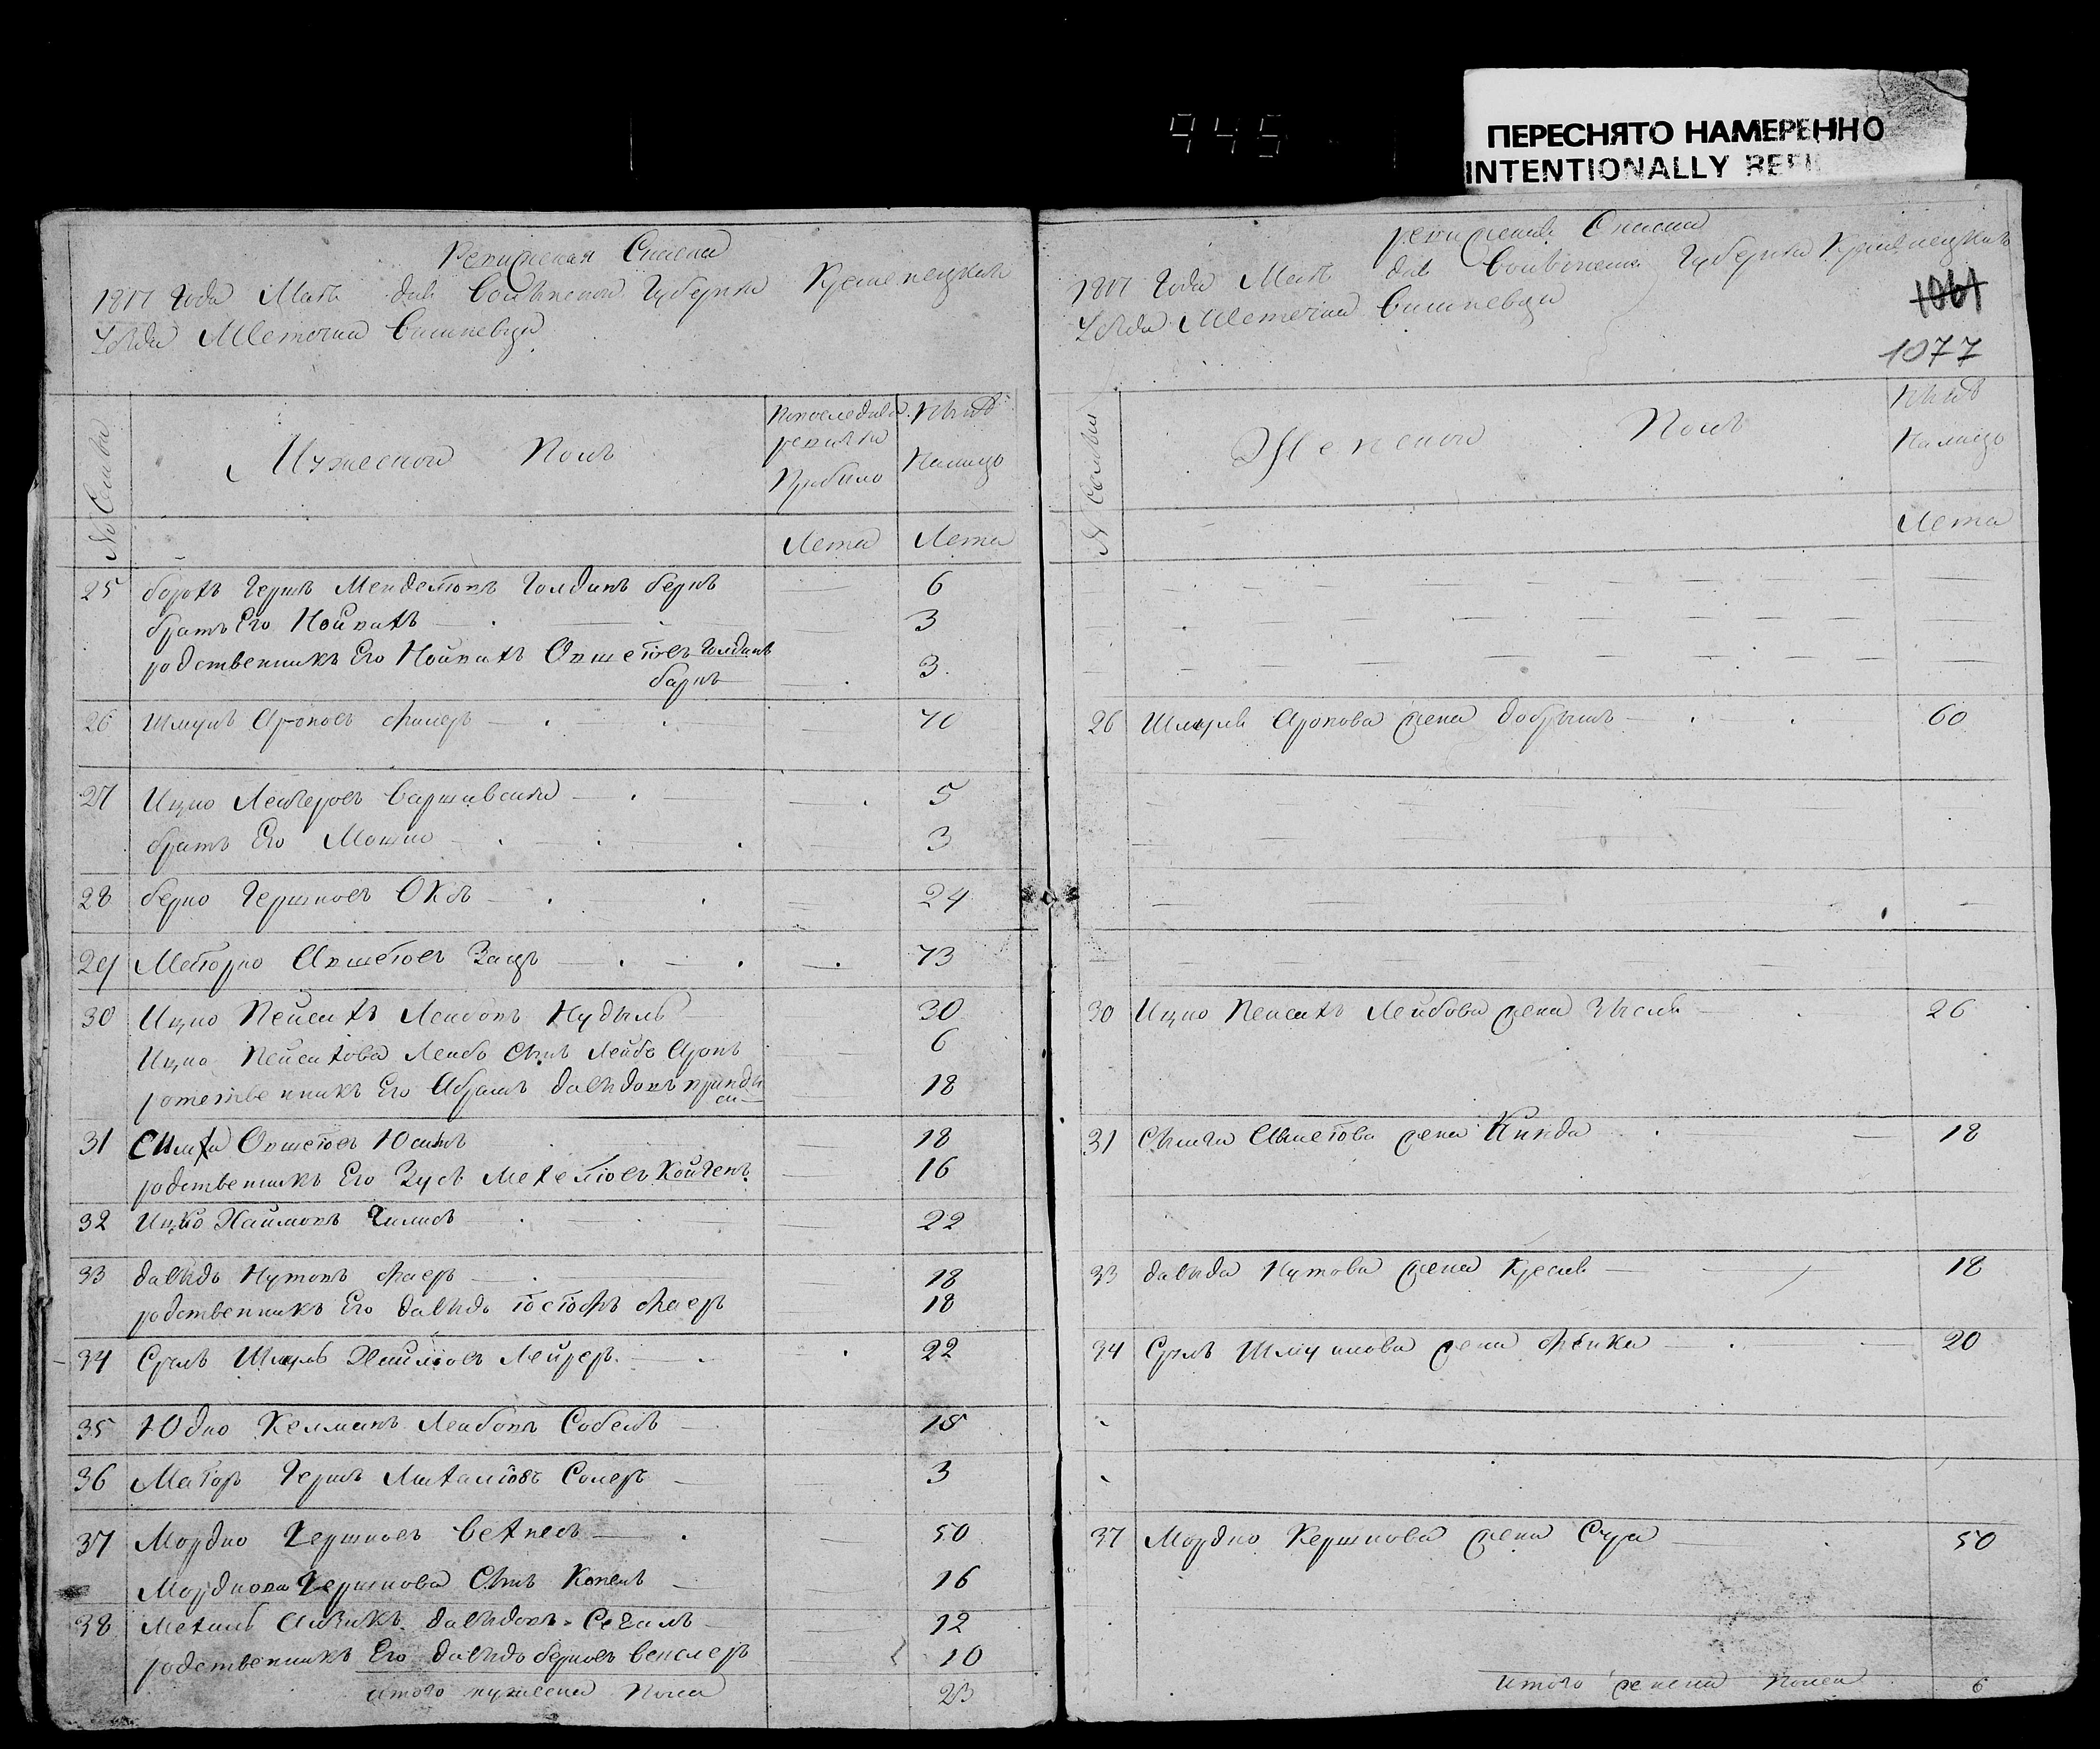 945
ПЕРЕСНЯТО НАМЕРЕННО
INTENTIONALLY REFI
Ревизская Сказка
1817 Года Маiя дня Волынской Губернiи Кременецкаго
Уезда Местечка Вишневца
№ Семьи
Мужеской Полъ
По последней ревизiи Прибыло
Ныне Налицо
Лета
Лета
25 борохъ Гершъ Менделiовъ Голдинъ бернъ 6
братъ Его Нойнахъ 3
родственникъ Его Нойнахъ Овшеiовъ Голдинъ
барнъ 3
26 Шмуль Ароновъ 70
27 Ицко Лейзеровъ Варшавски 5
братъ Его Мошко 3
28 берко Гершковъ Оксъ 24
29 Овшеiовъ Зацъ 73
30 Ицко Пейсахъ Лейбовъ Нудыль 30
Ицко Пейсахова Лейбо Сынъ Лейбо Аронъ 6
Его Абрамъ Давыдовъ 18
31 Симха Овшеiовъ Юсимъ 18
родственникъ Его Зусь Мехелiовъ Койгенъ 16
32 Ицко Хаимовъ 22
33 давыдъ Нутовъ фаеръ 18
родственникъ Его давыдъ Iосiофъ фаеръ 18
34 Сруль Шмуль Хаймiовъ Лейзеръ 22
35 Юдко Келманъ Лейбовъ Собель 18
36 Маiоръ Гершъ 3
37 Мордко Гершковъ 50
Мордкова Гершкова Сынъ Копель 16
38 Мехиль Айзикъ давыдовъ Сегаль 12
родственникъ Его давыдъ берковъ Векслеръ 10
итого мужеска пола 23
ревизская Сказка
1817 Года Маiя дня Волынской Губернiи Кременецкаго
Уезда Местечка Вишневца
1061
1077
№ Семьи
Женской Полъ
Ныне Налицо
Лета
26 Шмуля Аронова жена добрышъ 60
30 Ицко Пейсахъ Лейбова жена 26
31 Овшеiова жена Кинда 18
33 давыда Нутова жена Крейня 18
34 Сруль Шмулiова жена фейга 20
37 Мордко Гершкова жена Сура 50
итого женска пола 6